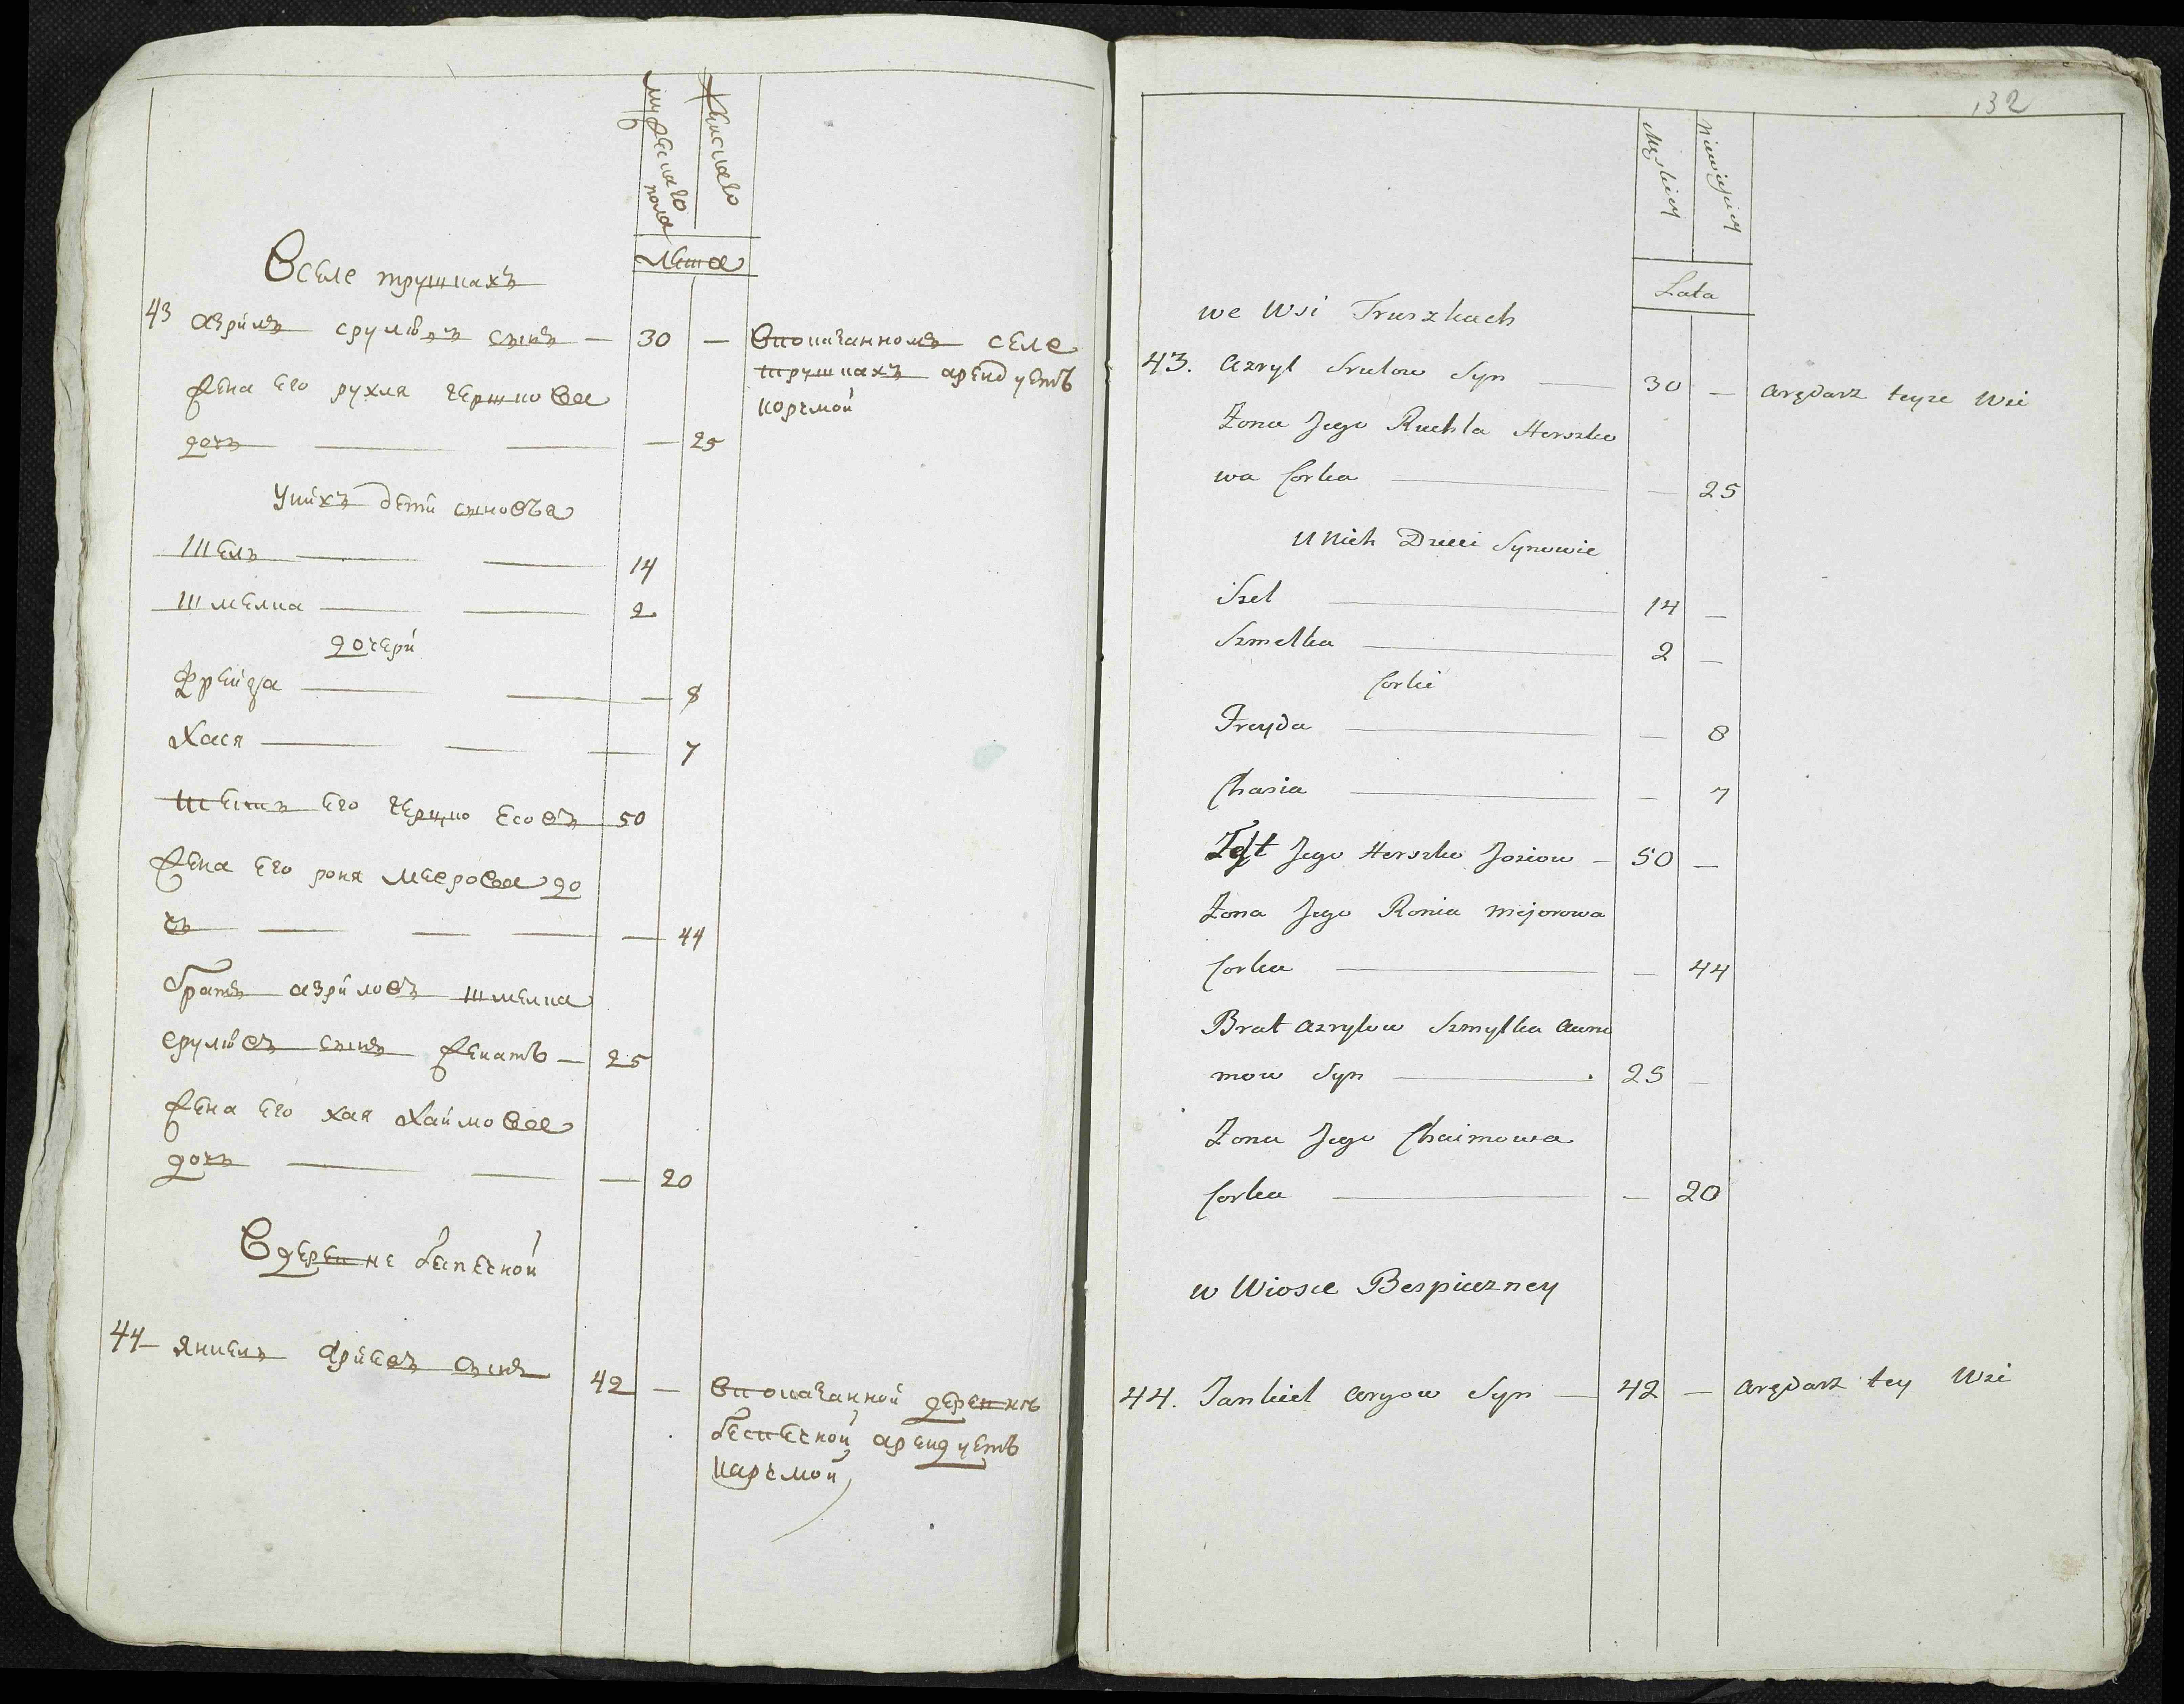 мужескаго пола
женскаго
лета
Вселе трушкахъ
43 азриль срулювъ сынъ — 30 — Впоказанномъ селе
трушкахъ арендуетъ
корчмой
жена его рухля гершкова
дочъ — 25
Унихъ дети сыновья
Шель 14
Шмелка 2
дочери
Фрейда — 8
Хася — 7
Тесть его гершко есовъ 50
жена его роня меерова до
чъ — 44
братъ азриловъ шмелка
срулювъ сынъ женатъ — 25
жена его хая хаймова
дочъ — 20
Вдеревне беспечной
44 янкель арiевъ сынъ 42 — Впоказанной деревнъ
беспечной арендуетъ
карчмой
132
Męskiey
Niewieskiey
Lata
we Wsi Truszkach
43. Azryl Srulow Syn — 30 — arędarz teyze Wsi
Żona Jego Ruchla Herszko
wa Corka — 25
U Nich Dzieci Synowie
Szel 14 —
Szmelka 2 —
Corki
Freyda — 8
Chasia — 7
Test Jego Herszko Josiow — 50 —
Żona Jego Ronia Mejorowa
Corka — 44
Brat Azrylow Szmylka
mow Syn 25 —
Żona Jego Chaimowa
Corka — 20
w Wiosce Bespieczney
44. Jankiel Aryow Syn — 42 — arędarz tey Wsi